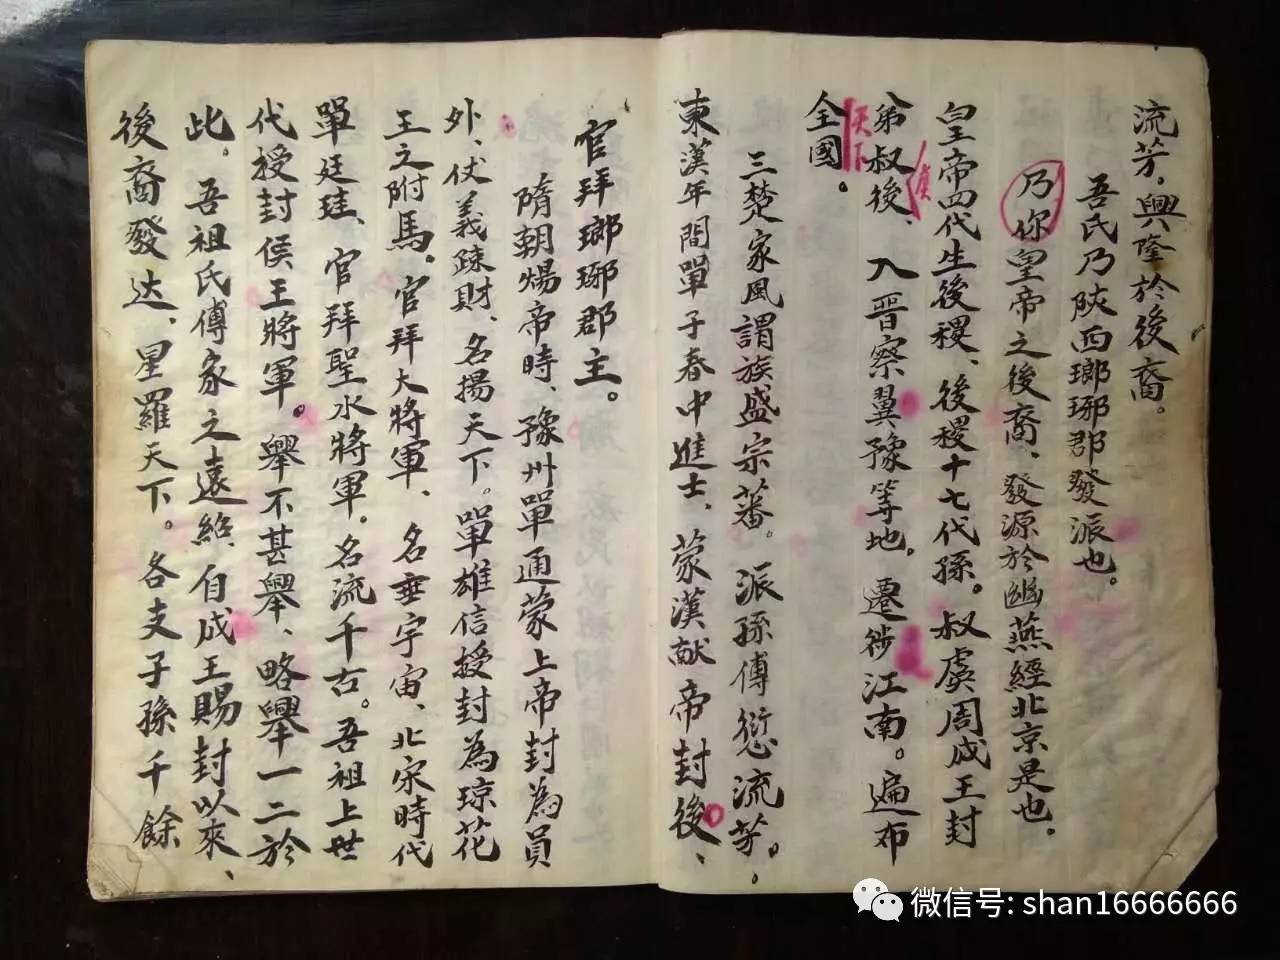 流芳。興隆於後裔。
吾氏乃陝西瑯琊郡發派也。
乃你皇帝之後裔、發源於幽燕經北京是也。
皇帝四代生後稷、後稷十七代孫。叔虞周成王封
弟叔後、入晋察翼豫等地。遷涉江南。遍布
天下
全國。
三楚家風謂族盛宗蕃。派孫傅愆流芳。
東漢年間單子春中進士、蒙漢献帝封後、
官拜瑯琊郡主。
隋朝煬帝時、豫州單通蒙上帝封為員
外、仗義疎財、名揚天下。單雄信授封為琼花
王之附馬。官拜大將軍、名垂宇宙、北宋時代
單廷珪、官拜聖水將軍。名流千古。吾祖上世
代授封侯王將軍。舉不甚舉、略舉一二於
此。吾祖氏傅家之遠紹、自成王賜封以來、
後裔發达、星羅天下。各支子孫千餘
微信号: shan16666666